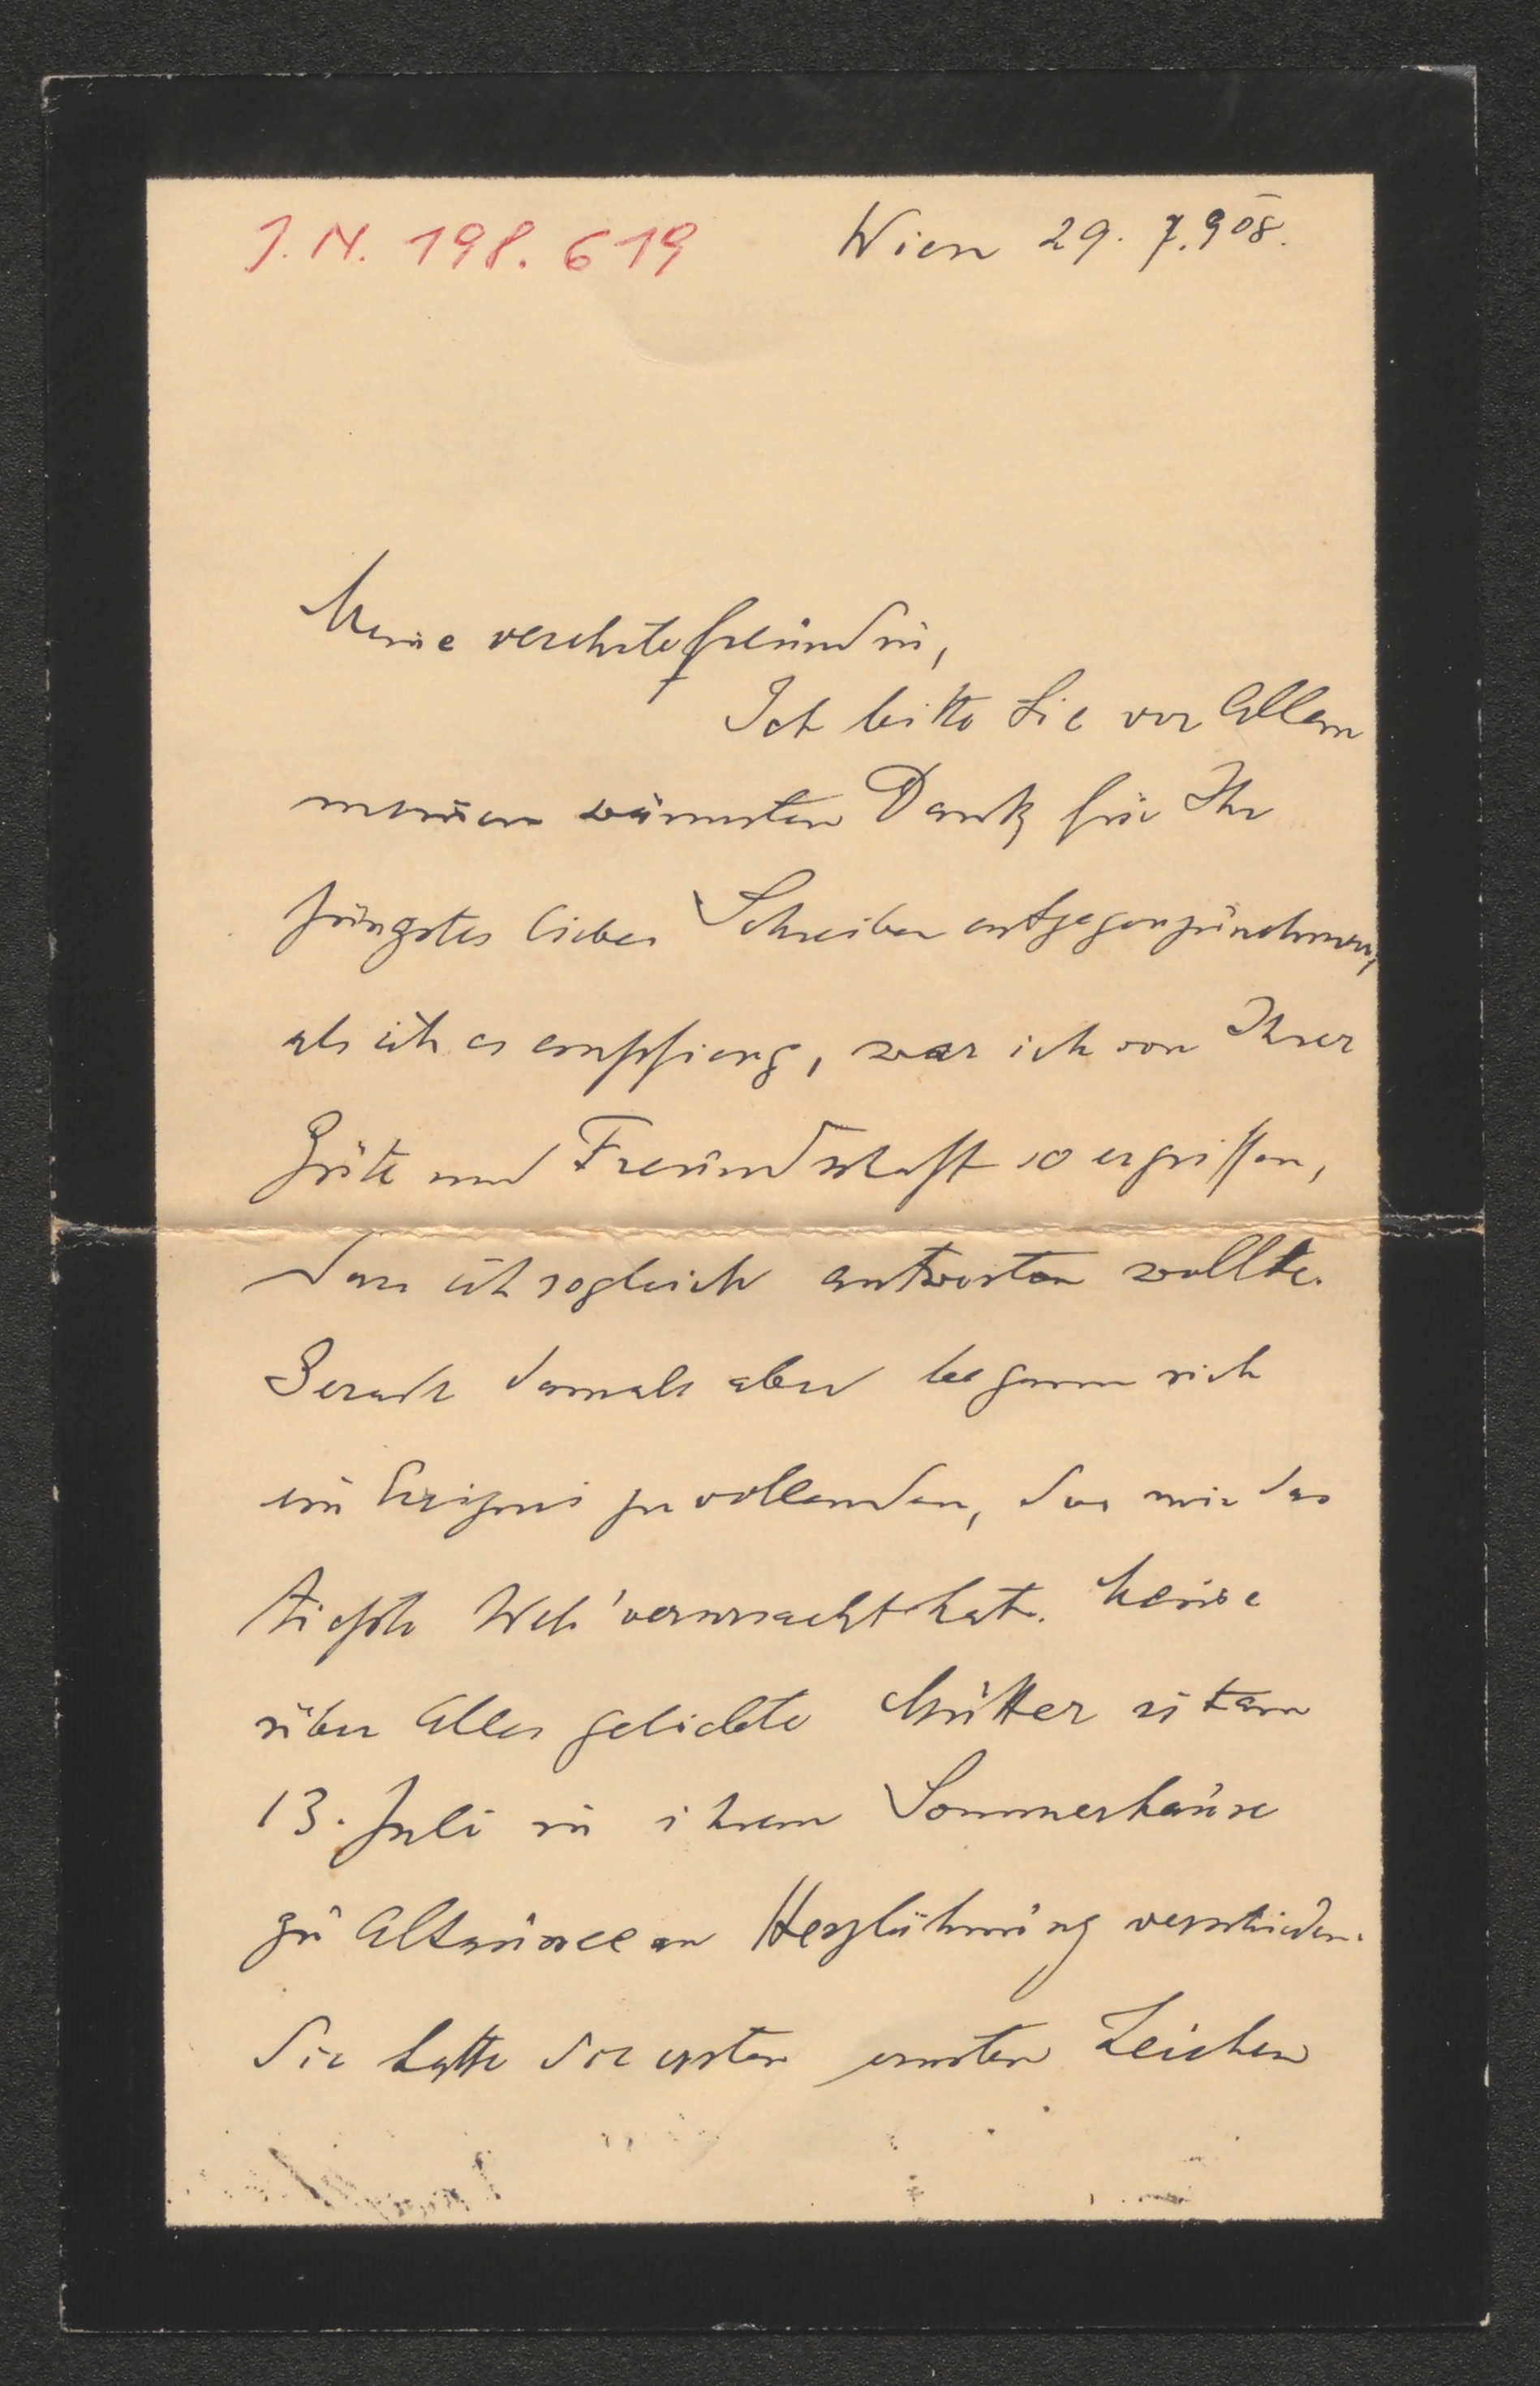 J.N. 198.619
Wien 29. 7. 908.
Meine verehrte Freundin,
Ich bitte Sie vor Allem
meinen wärmsten Dank für Ihr
jüngstes liebes Schreiben entgegenzunehmen;
als ich es empfieng, war ich von Ihrer
Güte und Freundschaft so ergriffen,
dass ich sogleich antworten wollte.
Gerade damals aber begann sich
ein Ereignis zu vollenden, das mir das
tiefste Weh verursacht hat. Meine
über Alles geliebte Mutter ist am
13. Juli in ihrem Sommerhause
zu Altaussee an Herzlähmung verschieden.
Sie hatte die ersten ernsten Zeichen